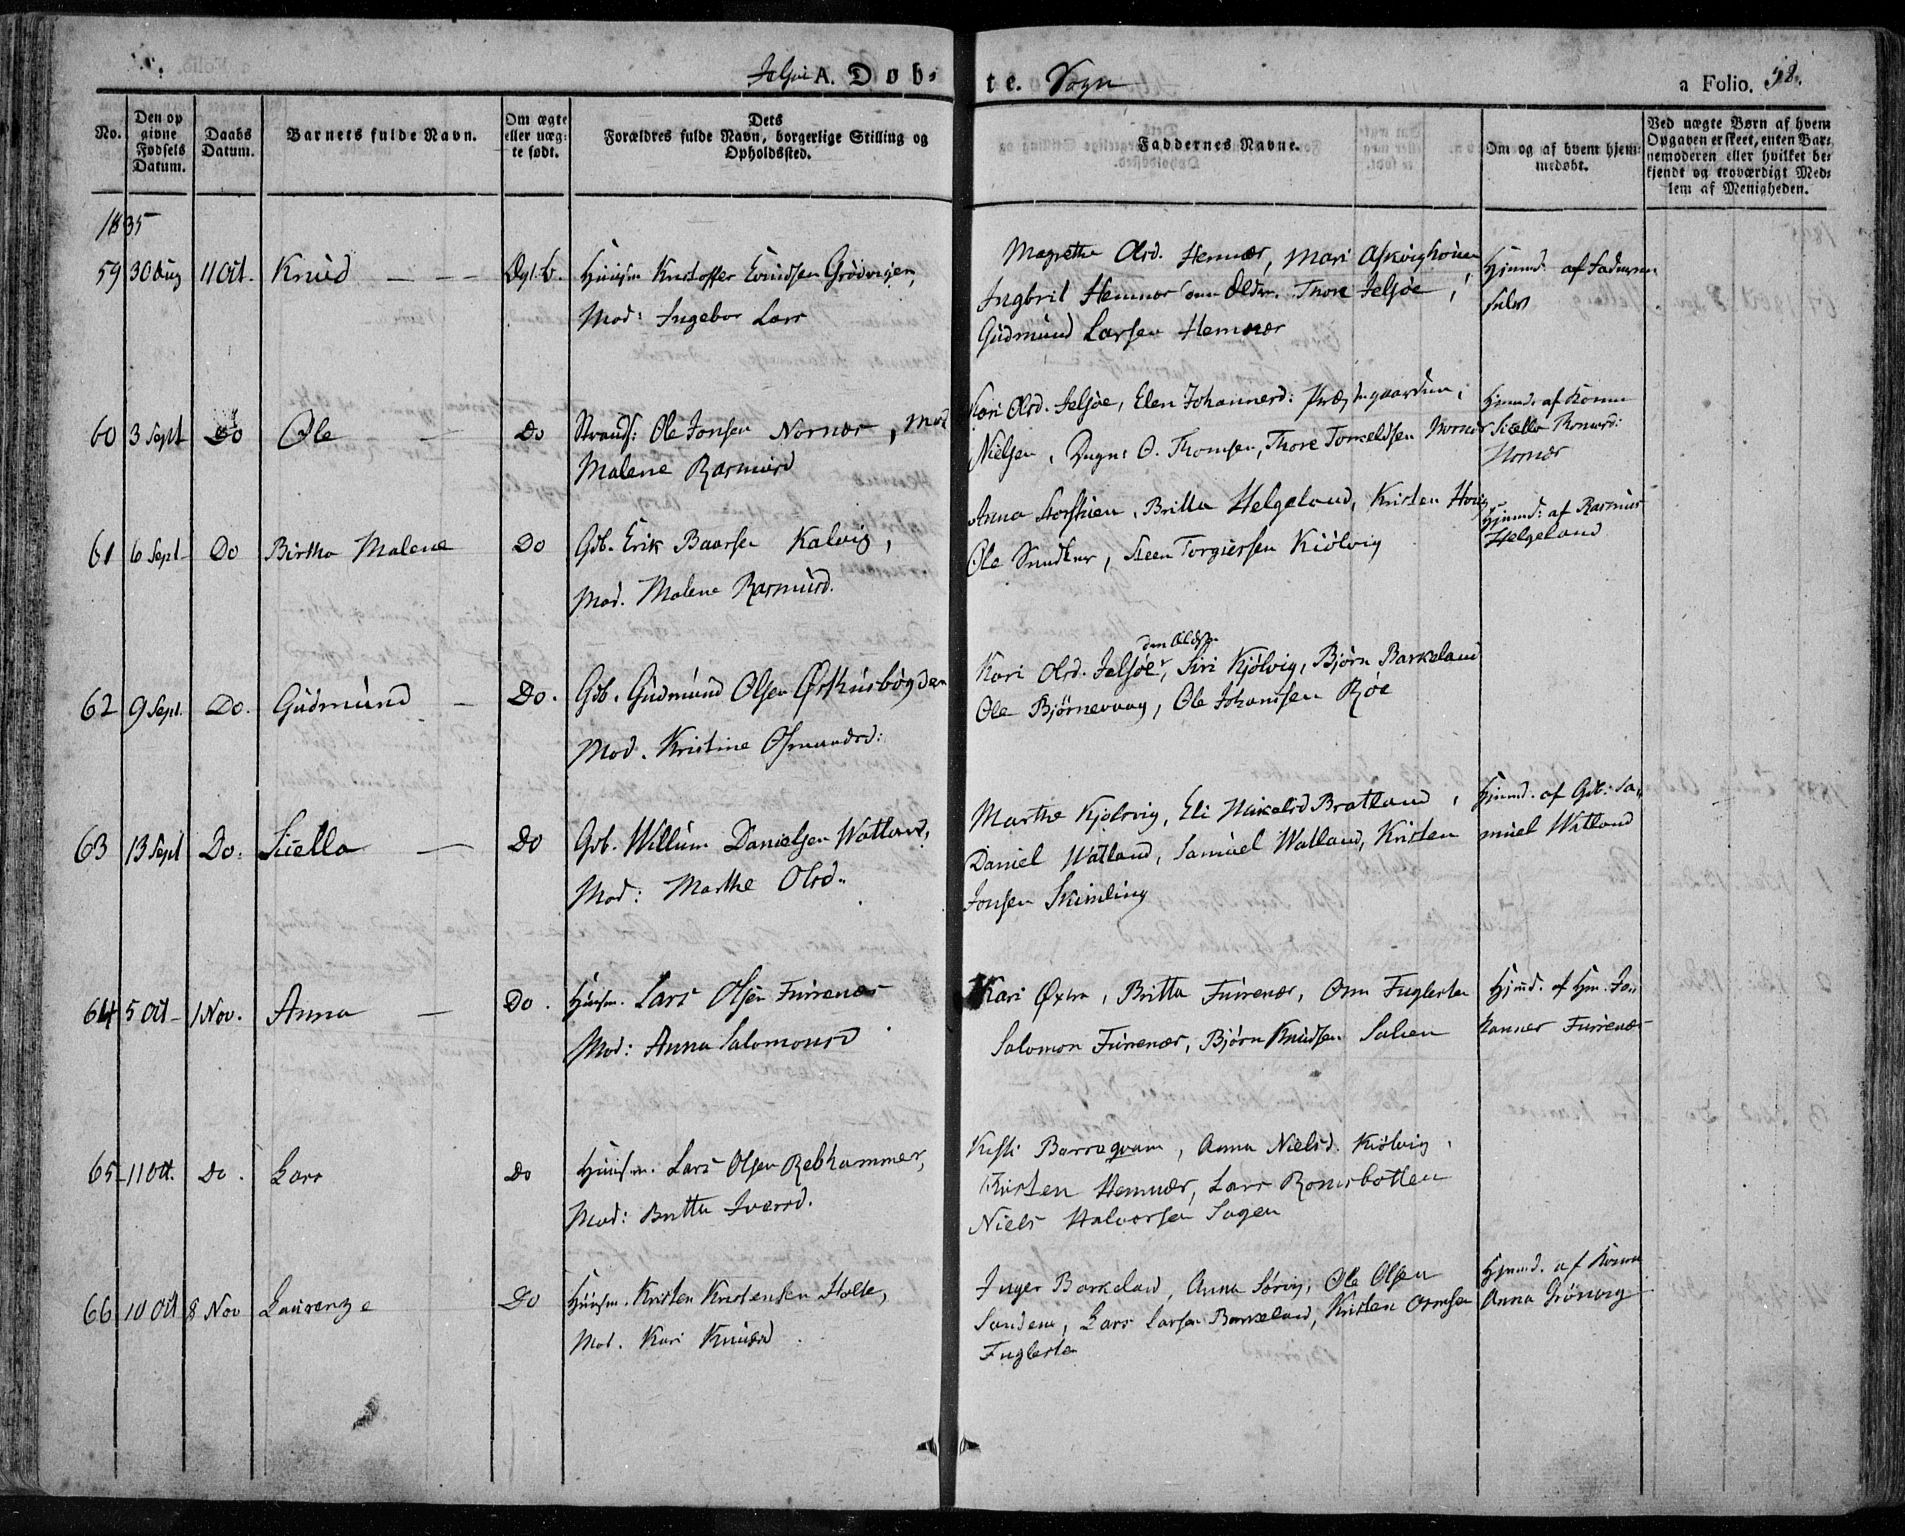 Jelsøe A. Døb- te. Sogn a Folio. 58.
No.
Den opgivne Fødsels Datum.
Daabs Datum.
Barnets fulde Navn.
Om ægte eller uægte født.
Dets Forældres fulde Navn, borgerlige Stilling og Opholdssted.
Faddernes Navne.
Om og af hvem hjemmedøbt.
Ved uægte Børn af hvem Opgaven er skeet, enten Barnemoderen eller hvilket bekjendt og troværdigt Medlem af Menigheden.
1835
59 30 Aug 11 Oct. Knud Ægt. b. Huusm Kristoffer Evindsen Grødvigen,
Mod: Ingebor Lars
Magrethe Olsd. Hemnær, Mari Asvighouen
Ingbrit Hemnær Thore Jelsøe,
Gudmund Larsen Hemnær
Hjemd. af Faderen
selv
60 3 Sept Do Ole Do Strands: Ole Jonsen Nornær, Mod
Malene Rasmusd
Kari Olsd. Jelsøe, Elen Johannesd: Præstegaarden,
Nielsen, O. Thomsen, Thore Torkeldsen Nornær
Hjemd. af Konen
Sicella Rasmusd:
Nornær
61 6 Sept Do Birtha Malene Do Gdb. Erik Baarsen Kalvig,
Mod. Malene Rasmusd.
Anna Storstein, Britta Helgeland, Kristen
Ole Snedker, Steen Torgiersen Kiølvig
Hjemd: af Rasmus
Helgeland
62 9 Sept. Do. Gudmund Do. Gdb. Gudmund Olsen Øskusbøgden
Mod. Kristine Osmundsd:
den Eldste
Kari Olsd. Jelsøe, Siri Kjølvig, Bjørn Barkeland
Ole Bjørnevaag, Ole Johansen Røe
63 13 Sept Do. Sicella Do Gdb. Willum Danielsen Watland,
Mod: Marthe Olsd.
Marthe Kjølvig, Eli Mikelsd Bratland,
Daniel Watland, Samuel Watland, Kristen
Jonsen Skimling
Hjemd. af Gdb: Sa-
muel Watland
64 5 Oct 1 Nov. Anna Do. Huusm. Lars Olsen Furrenær
Mod: Anna Salomonsd
Kari Øxtra, Britta Furrenær, Osm Fuglesten
Salomon Furrenær, Bjørn Knudsen Salien
Hjemd. af Hm. Jo-
hannes Furrenær
65 11 Oct. Do. Lars Do Huusm. Lars Olsen Rebhammer,
Mod: Britta Iversd.
Kisti Barraqvam, Anna Nielsd. Kiølvig,
Kristen Hemnær, Lars Ramsbotten
Niels Halvorsen Sagen
66 10 Oct 8 Nov Laurenze Do Huusm. Kristen Kristensen Holte,
Mod. Kari Knudsd
Inger Barkeland, Anna Sørvig, Ole Olsen
Sandene, Lars Larsen Barkeland, Kristen Osmsen
Fuglesten
Hjemd. af Konen
Anna Grønvig